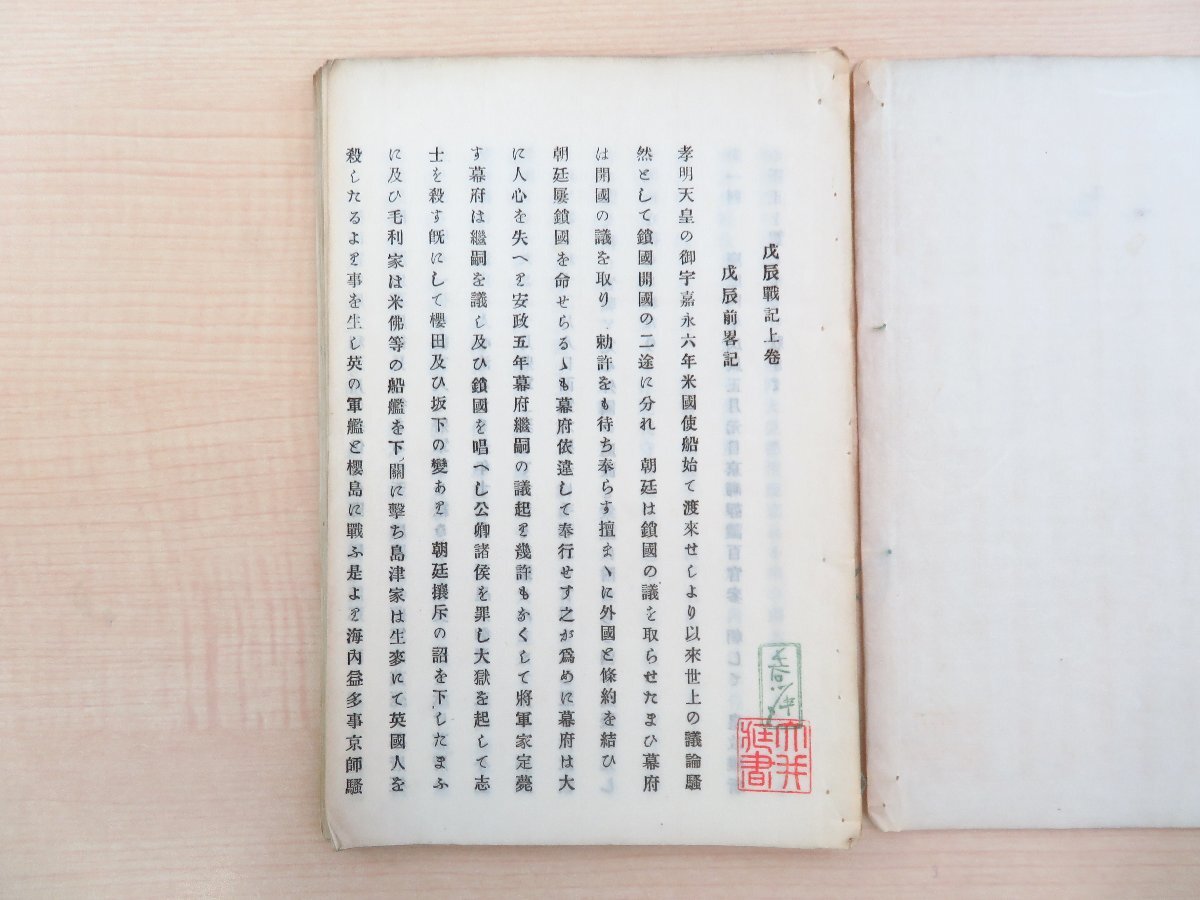 戊辰戰記上卷
戊辰前畧記
孝明天皇の御宇嘉永六年米國使船始て渡來せしより以來世上の議論騷
然として鎖國開國の二途に分れ 朝廷は鎖國の議を取らせたまひ幕府
は開國の議を取り 勅許をも待ち奉らす擅まゝに外國と條約を結ひ
朝廷屢鎖國を命せらるゝも幕府依違して奉行せす之が爲めに幕府は大
に人心を失へり安政五年幕府繼嗣の議起り幾許もなくして將軍家定薨
す幕府は繼嗣を議し及ひ鎖國を唱へし公卿諸侯を罪し大獄を起して志
士を殺す旣にして櫻田及ひ坂下の變あり 朝廷攘斥の詔を下したまふ
に及ひ毛利家は米佛等の船艦を下ノ關に擊ち島津家は生麥にて英國人を
殺したるより事を生し英の軍艦と櫻島に戰ふ是より海內益多事京師騷